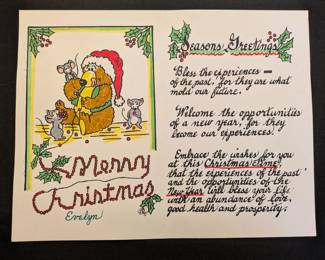 Merry
Christmas
Evelyn
Seasons Greetings
Bless the experiences —
of the past, for they are what
mold our future.
Welcome the opportunities
of a new year, for they
become our experiences!
Embrace the wishes for you
at this Christmas Time,
that the experiences of the past
and the opportunities of the
New Year will bless your life
with an abundance of love,
good health and prosperity.